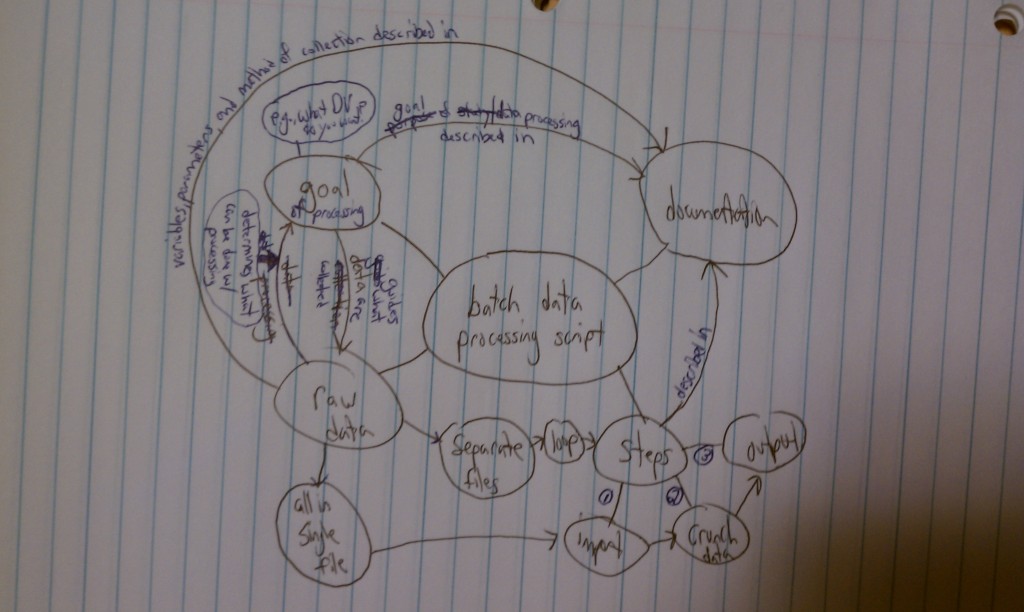 variables, parameters, and method of collection described in
e.g., what DV
do you want
goal
of data processing
described in
goal
of processing
documentation
determines what
can be done w/
processing
guides
what
data are
collected
batch data
processing script
described in
raw
data
Separate
files
loop
Steps
③
output
①
②
all in
single
file
import
Crunch
data